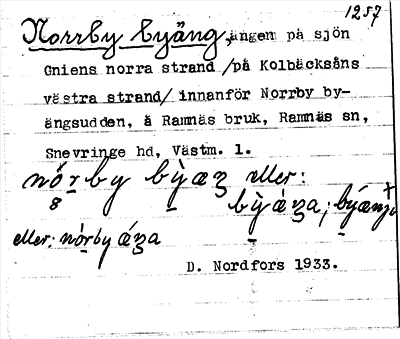 1257
Norrby byäng, ängen på sjön
Gniens norra strand /på Kolbäcksåns
västra strand/ innanför Norrby by-
ängsudden, å Ramnäs bruk, Ramnäs sn,
Snevringe hd, Västm. l.
nórby bỳæȝ eller:
bỳàȝa;
eller: nórby áȝa
D. Nordfors 1933.